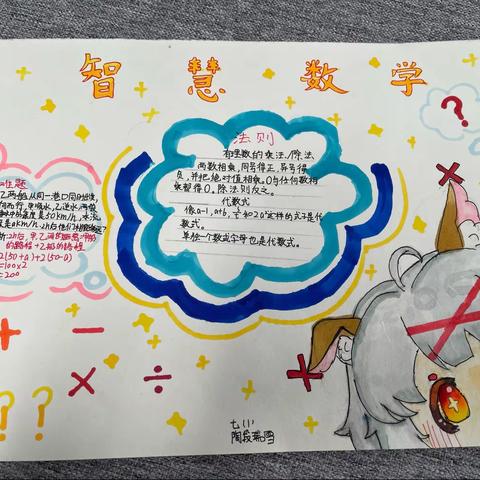 智慧数学
法则
有理数的乘法/除法
两数相乘,同号得正,异号得
负,并把绝对值相乘。0与任何数相
乘都得0。除法则反之。
代数式
像a-1,a+b,
和2a²这样的式子是代
数式。
单独一个数或字母也是代数式。
难题
两船从同一港口同时出发,
而行,甲顺水,乙逆水,两船
静水中的速度是50km/h,水流
是akm/h,2h后他们相距多远?
2h后,甲、乙
的路程+乙船的路程
2(50+a)+2(50-a)
=100×2
=200
+ −
× ÷
? ?
?
七(1)
陶段